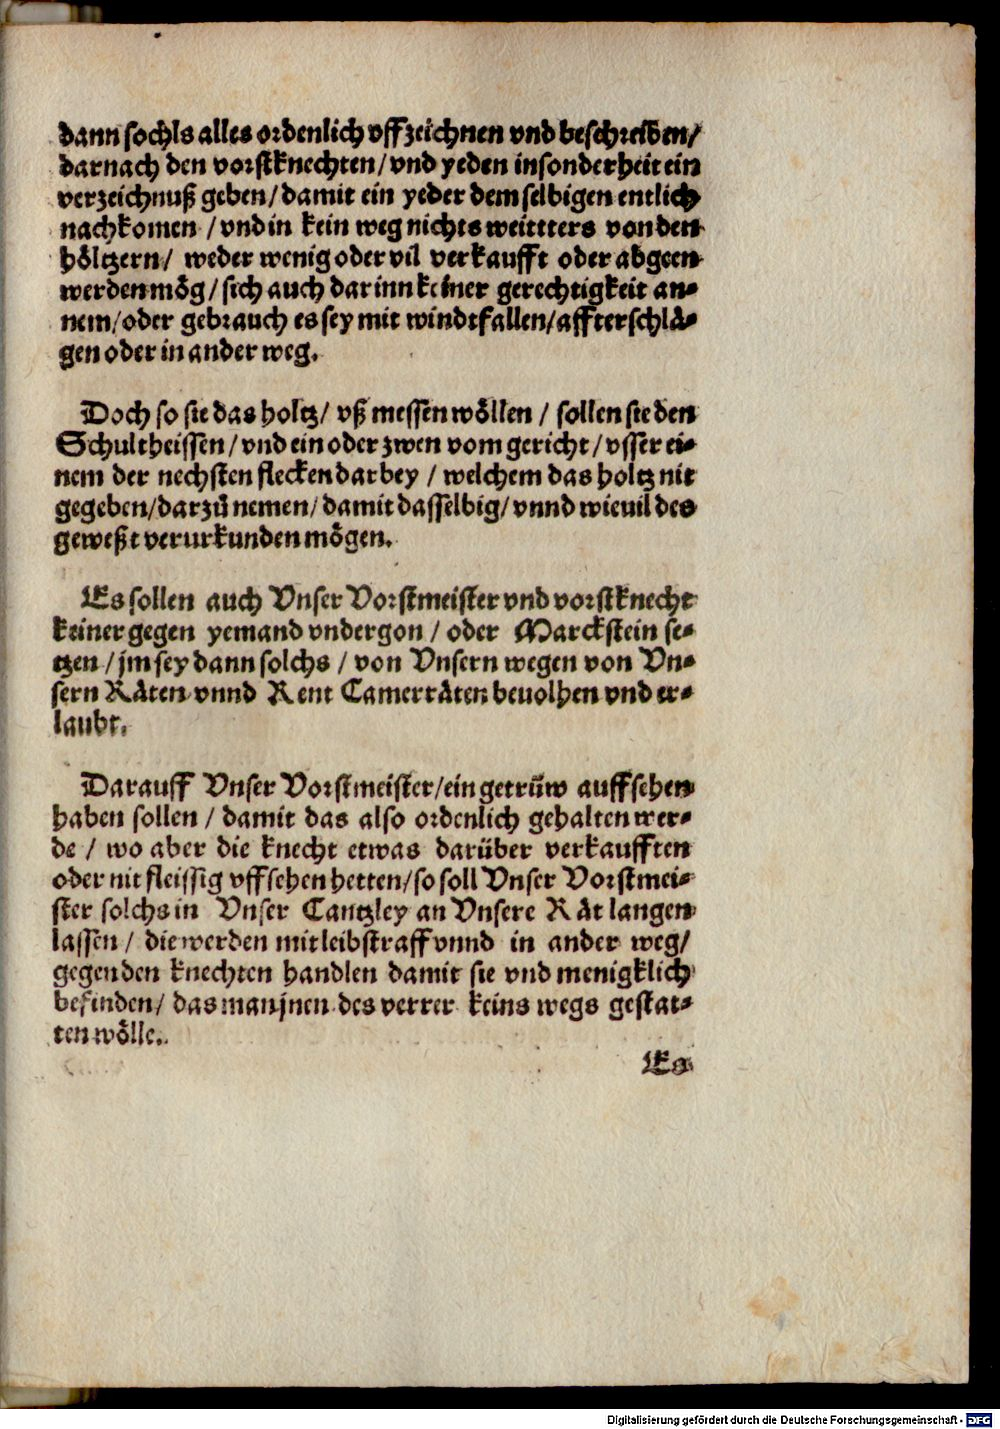 dann sochls alles ordenlich vffzeichnen vnd beschreiben/
darnach den vorstknechten/vnd yeden insonderheit ein
verzeichnuß geben/damit ein yeder dem selbigen entlich
nachkomen /vnd in kein weg nichts weittters von den
höltzern/ weder wenig oder vil verkaufft oder abgeen
werden mög/sich auch darinn keiner gerechtigkeit an-
nem/oder gebrauch es sey mit windtfallen/affterschlä-
gen oder in ander weg.
Doch so sie das holtz/ vß messen wöllen / sollen sie den
Schultheissen/vnd ein oder zwen vom gericht/vsser ei-
nem der nechsten flecken darbey / welchem das holtz nit
gegeben/darzů nemen/damit dasselbig/vnnd wieuil des
geweßt verurkunden mögen.
Es sollen auch Vnser Vorstmeister vnd vorstknecht
keiner gegen yemand vndergon / oder Marckstein se-
tzen /jm sey dann solchs / von Vnsern wegen von Vn-
sern Räten vnnd Rent Camerräten beuolhen vnd er-
laubt.
Darauff Vnser Vorstmeister/ein getrüw auffsehen
haben sollen / damit das also ordenlich gehalten wer-
de / wo aber die knecht etwas darüber verkaufften
oder nit fleissig vffsehen hetten/so soll Vnser Vorstmei-
ster solchs in Vnser Cantzley an Vnsere Rät langen
lassen / die werden mit leibstraff vnnd in ander weg/
gegen den knechten handlen damit sie vnd menigklich
befinden/ das man jnen des verrer keins wegs gestat-
ten wölle.
Es
Digitalisierung gefördert durch die Deutsche Forschungsgemeinschaft - DFG